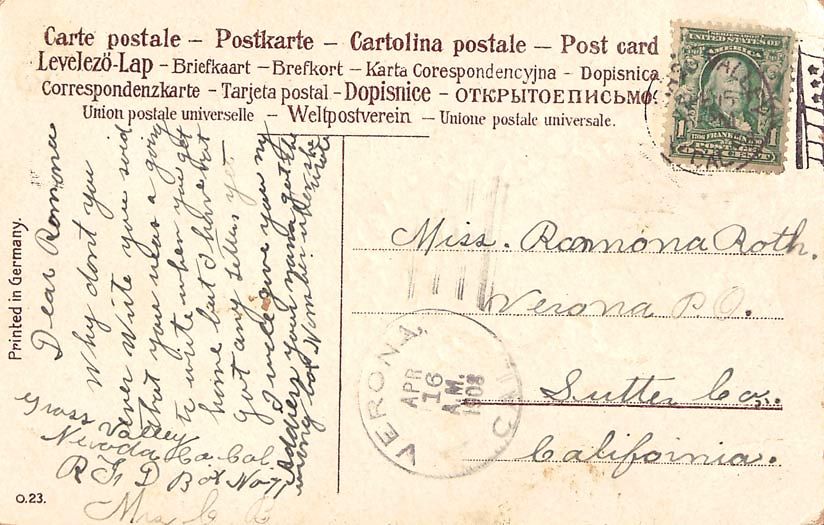 Carte postale – Postkarte – Cartolina postale – Post card
Levelező-Lap - Briefkaart - Brefkort - Karta Corespondencyjna - Dopisnica
Correspondenzkarte - Tarjeta postal - Dopisnice - ОТКРЫТОЕПИСЬМО.
Union postale universelle – Weltpostverein – Unione postale universale.
UNITED STATES OF
AMERICA
1
FRANKLIN
1
Dear Ramona
Why dont you
ever write you said
that you was a going
to write when you get
home but I have not
got any letters yet
I will give you my
address your mama got the
wrong box Number when she
wrote
Grass Valley
Nevada Co. Cal
R F D Box No 71
Mrs C B
Miss. Ramona Roth.
Verona P.O.
Sutter Co.
California.
VERONA,
APR
16
A.M.
1908
Printed in Germany.
O.23.